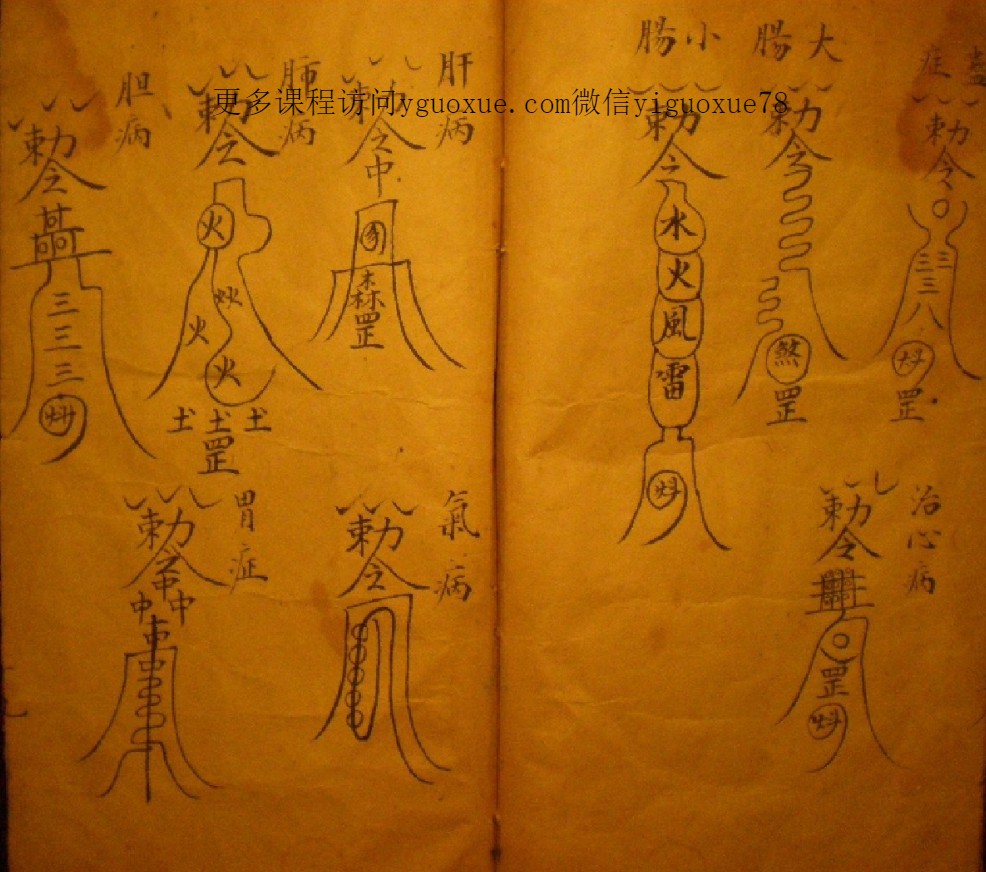 更多课程访问yguoxue.com微信yiguoxue78
症
勅令
三三三八
罡
大腸
勅令
煞
罡
小腸
勅令
水火風雷
治心病
勅令
罡
肝病
勅令
中
森罡
肺病
勅令
火
火
火
土土土
罡
胆病
勅令
三三三
氣病
勅令
胃症
勅令
中中中